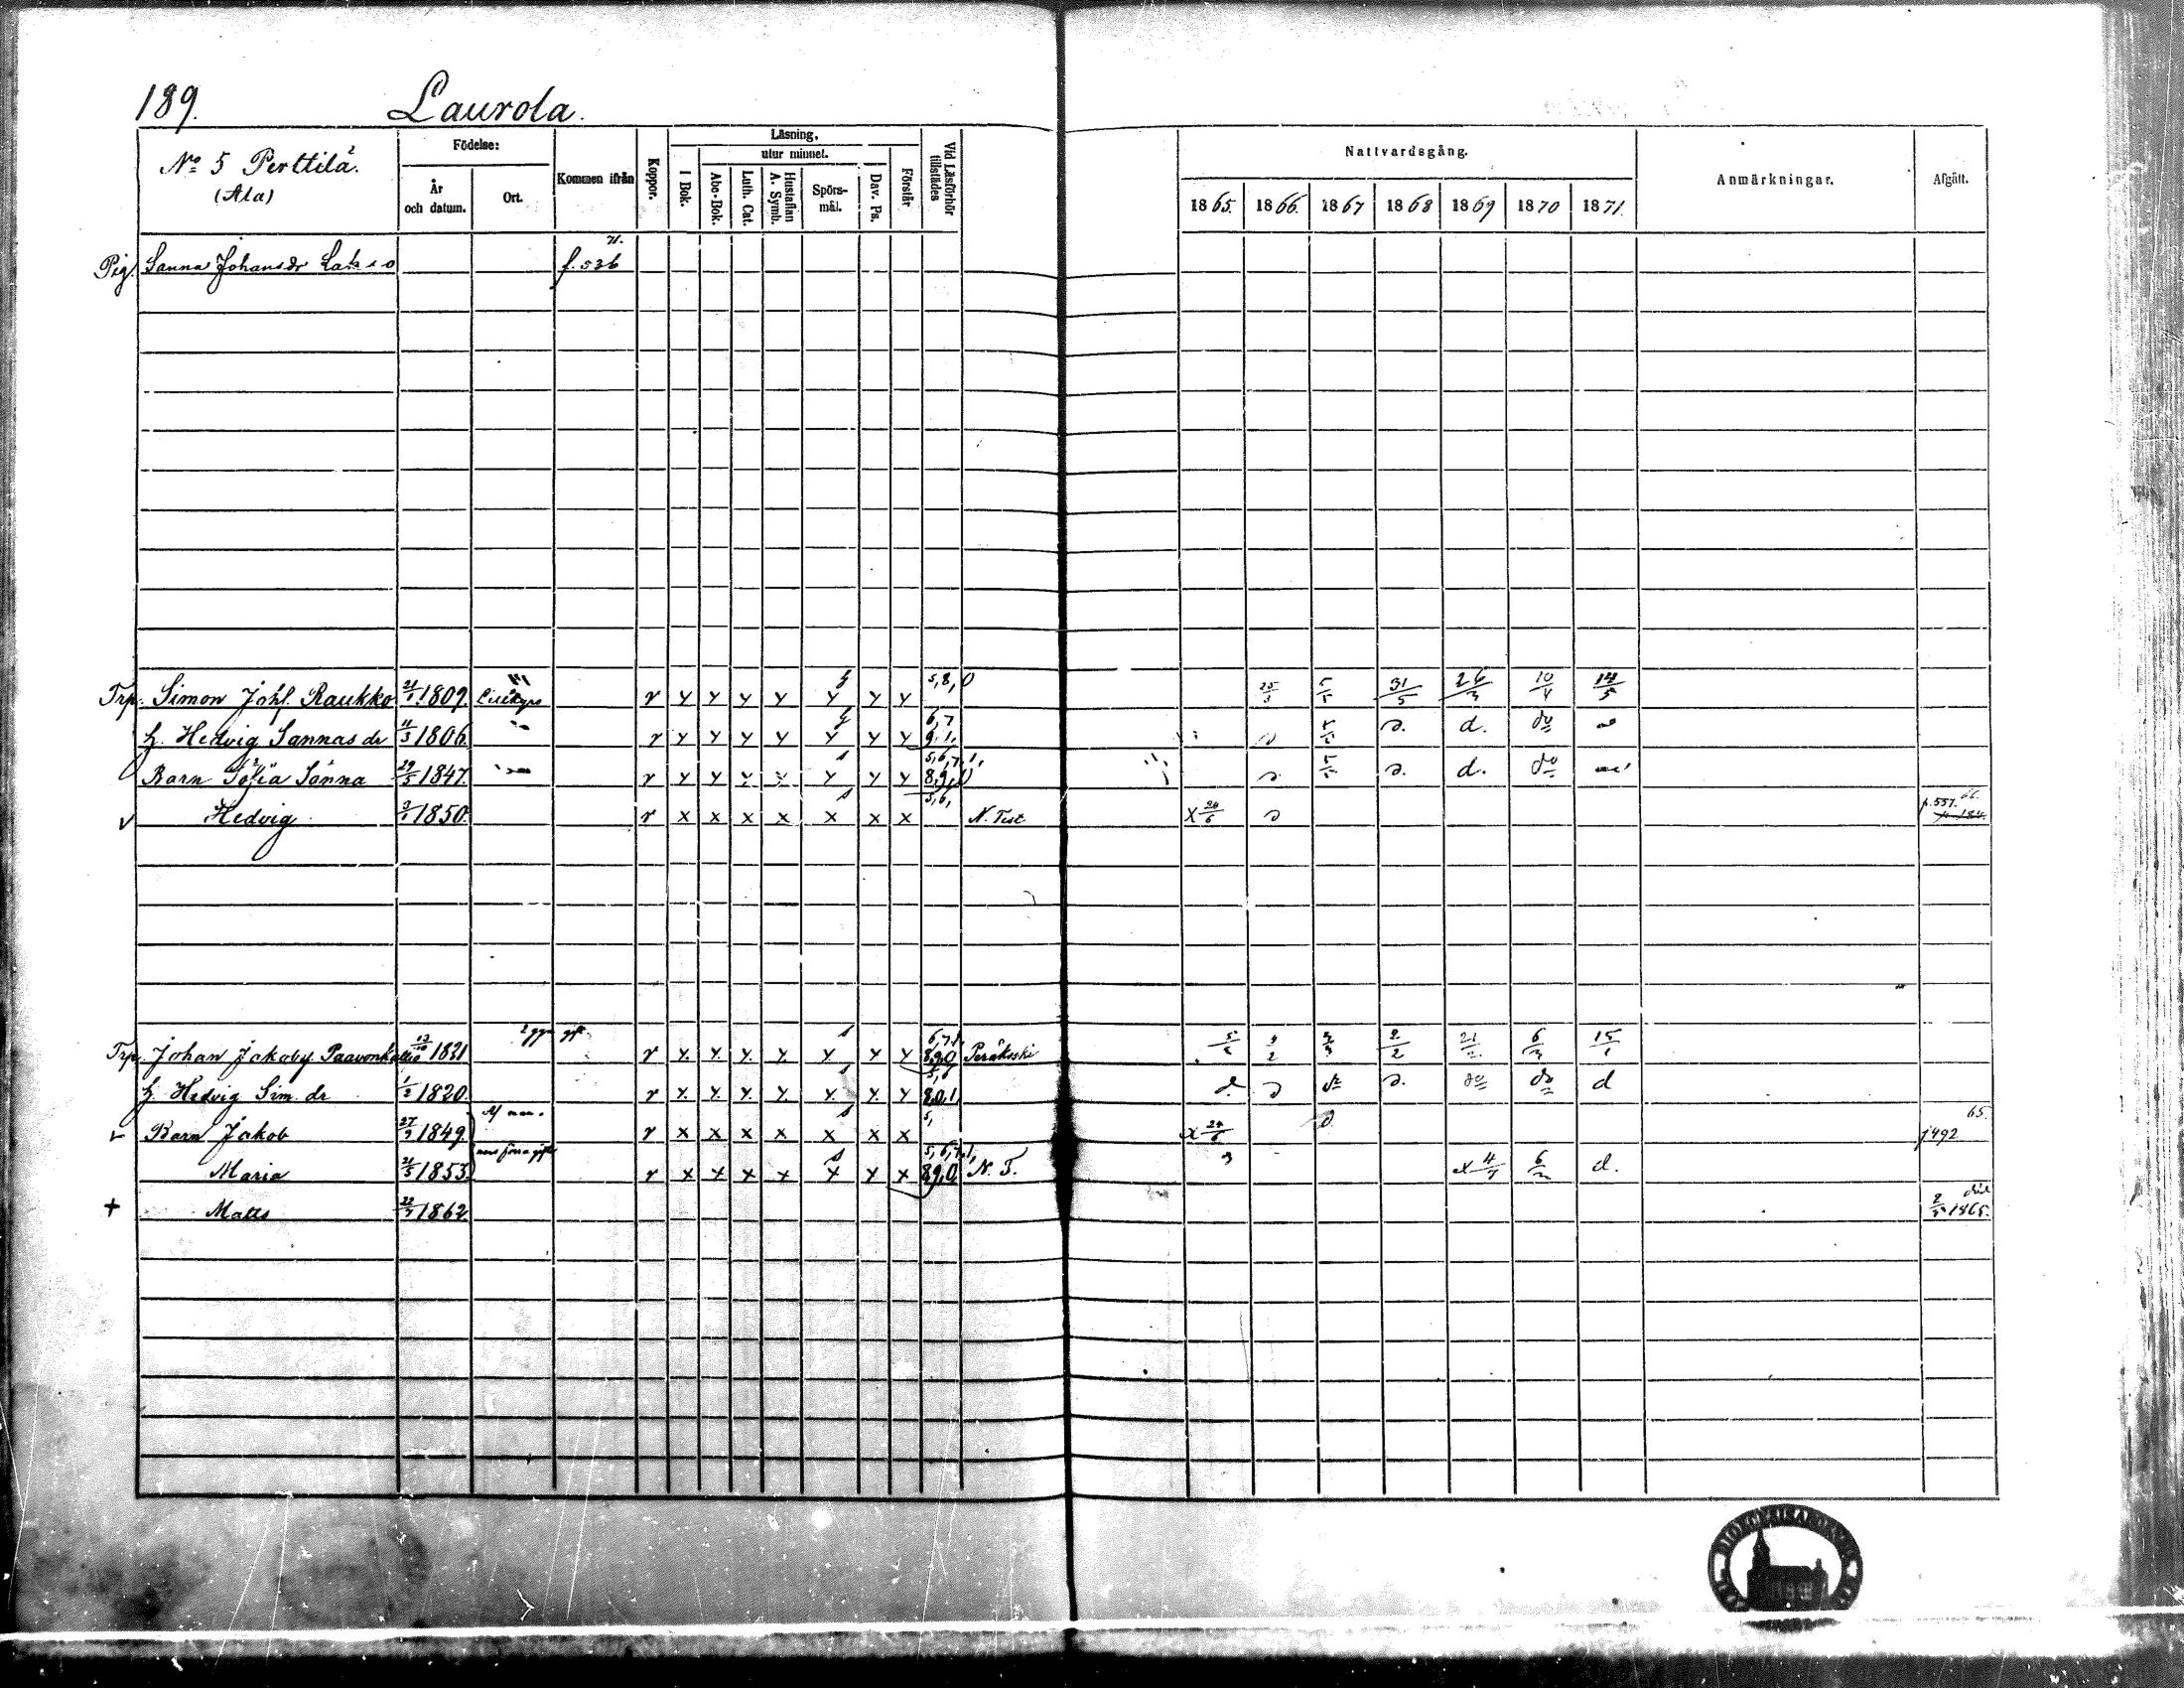 189. Laurola.
No 5 Perttilä.
(Ala)
Födelse:
År och datum.
Ort.
Kommen ifrån
Koppor.
Läsning,
utur minnet.
I Bok.
Abc-Bok.
Luth. Cat.
Hustaflan A. Symb.
Spörsmål.
Dav. Ps.
Förstår
Vid Läsförhör tillstädes
Nattvardsgång.
1865. 1866. 1867 1868 1869 1870 1871.
Anmärkningar.
Afgått.
Pig. Sanna Johansdr f. 536 71.
Trp. Simon Joh. Raukko 21/1 1809. r y y y y y y y 5,8,0 25/3 5/5 31/5 26/3 10/4 14/5
h. Hedvig Sannas dr 11/5 1806. r y y y y y y y 6,7 9,1, 5/5 d. d. do
Barn Sofia Sanna 29/5 1847. r y y y y y y y 5,6,7,1, 8,9,0 5/5 d. d. do
v Hedvig 3/1 1850. r x x x x x x x 5,6, N. Test x 24/6 p. 557. 66.
Trp. Johan Jakobp. Paavonkallio 13/10 1821 2 ggr gift r y y y y y y y 6,7,1 8,9,0 2/2 21/2 6/3 15/1
h. Hedvig Sim. dr 1/2 1820. r y y y y y y y 8,0,1 d. d do d. do do d
v Barn Jakob 27/9 1849 r x x x x x x x 5, x 24/6 f 492 65.
Maria 21/5 1853. r x x x x x x x 5,6,7,1, 8,9,0 N. T. x 11/7 6/3 d.
+ Matts 22/7 1862 1865.